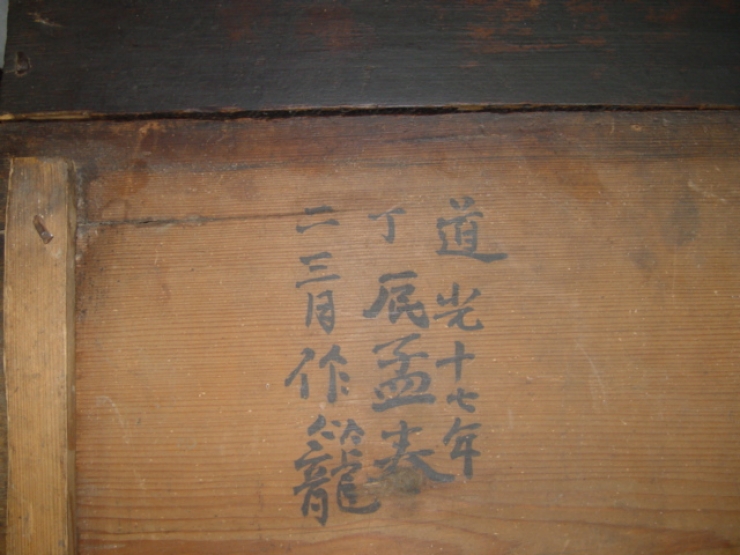 道光十七年
丁孟春
二三月作籠